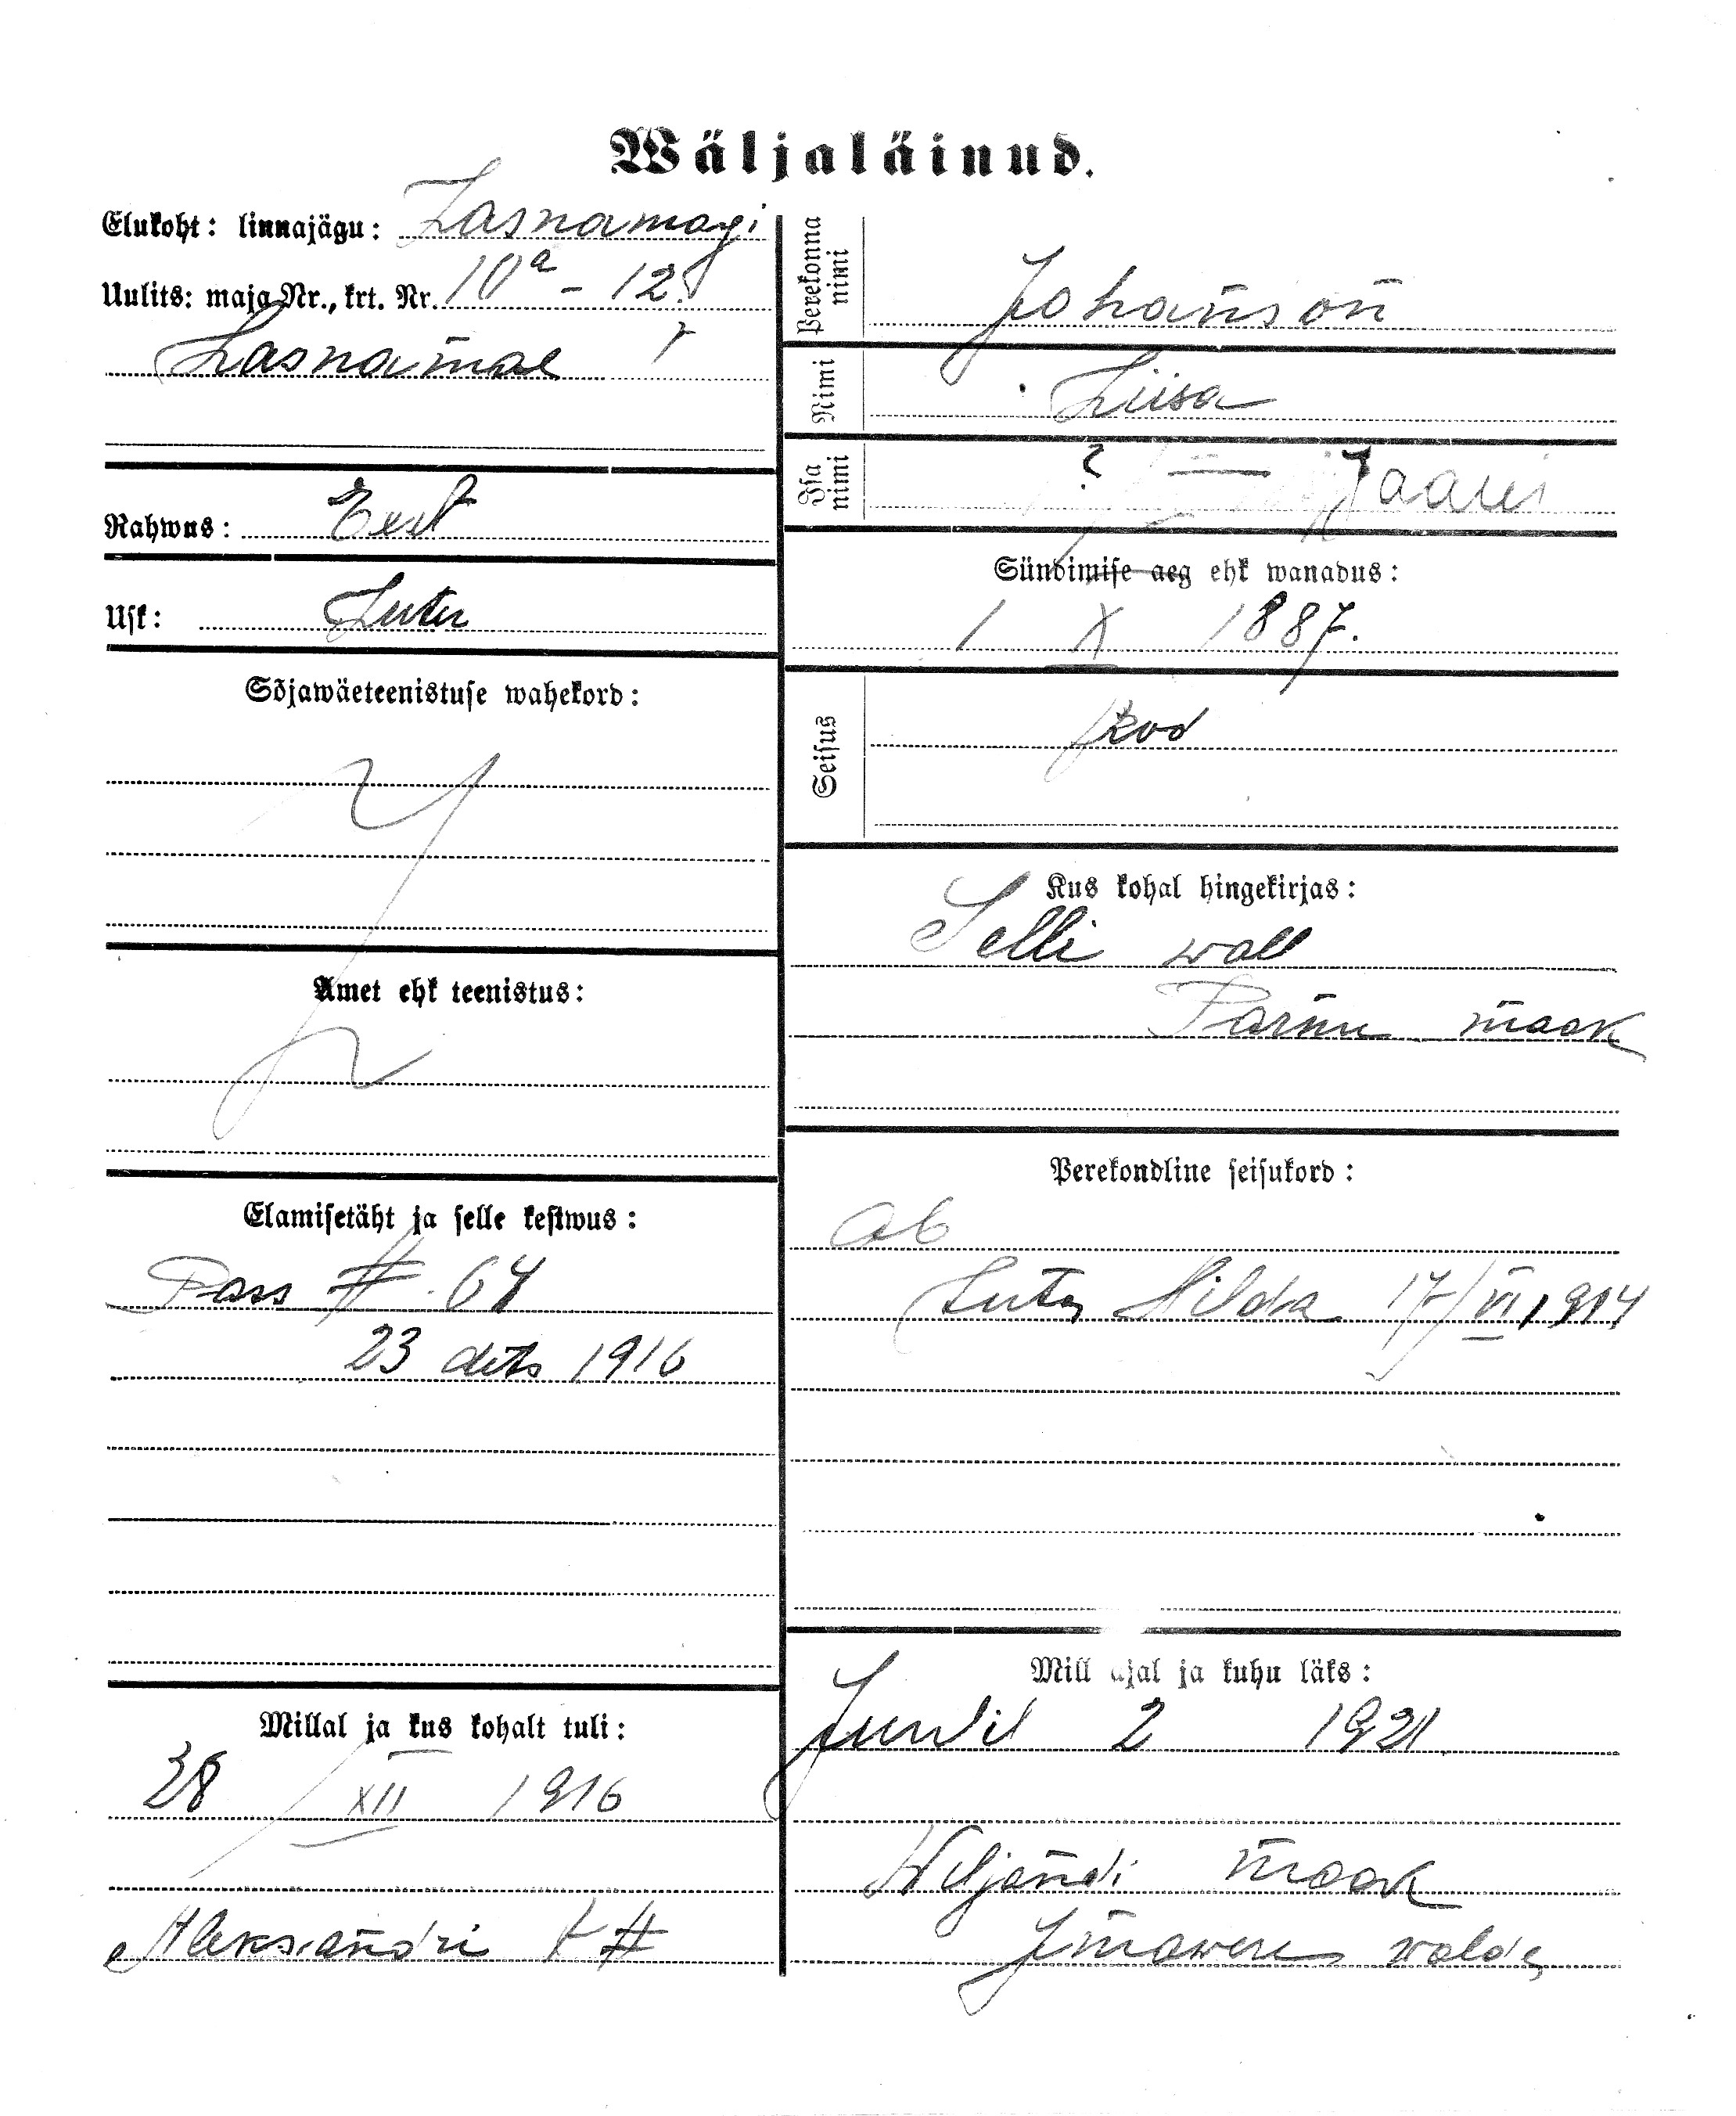 Wäljaläinud.
Elukoht: linnajägu: Lasnamagi
Uulits: maja Nr., krt. Nr. 10a - 12.
Lasnamae
Rahwus: Eest
Usk: Luter
Sõjawäeteenistuse wahekord:
Amet ehk teenistus:
Elamisetäht ja selle kestwus:
Pass # 64
23 dets 1916
Millal ja kus kohalt tuli:
28 XII 1916
Aleksandri
Perekonna nimi Johanson
Nimi Liisa
Isa nimi ? — Jaani
Sündimise aeg ehk wanadus:
1 X 1887.
Seisus kod
Kus kohal hingekirjas:
Selli wall
Parnu maak
Perekondline seisukord:
ab
Hilda 17/VI 1914
Mill ajal ja kuhu läks:
Juulil 2 1921
Wiljandi maak
Imawere walda